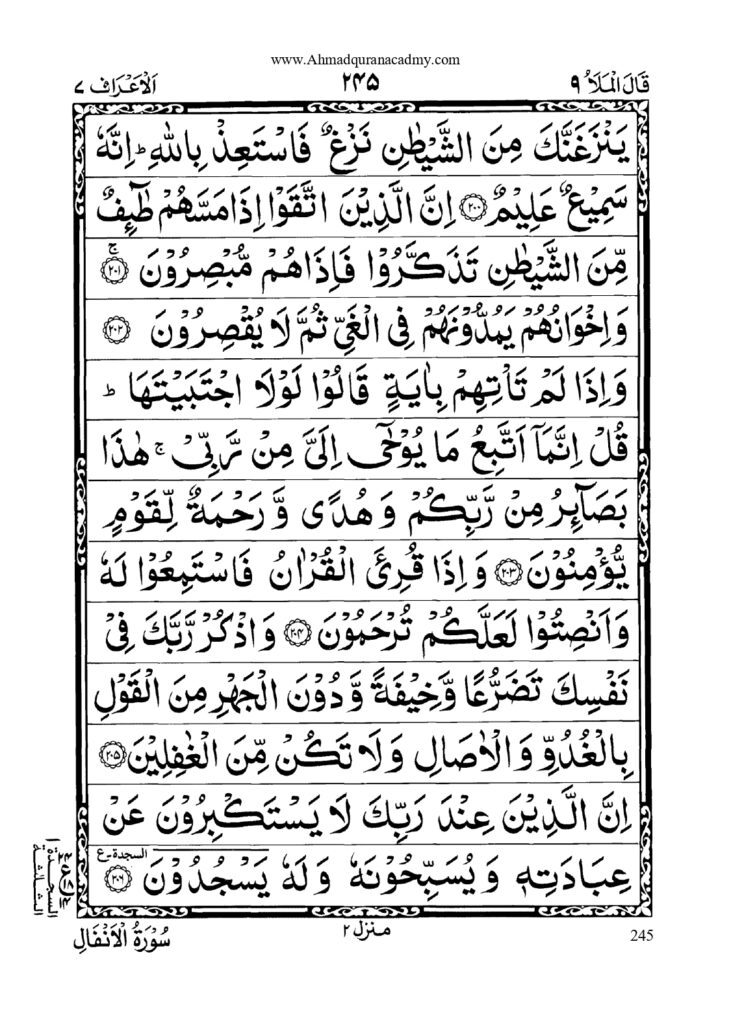 www.Ahmadquranacadmy.com
قَالَ الْمَلَاُ ۹ ۲۴۵ اَلْاَعْرَاف ۷
يَنْزَغَنَّكَ مِنَ الشَّيْطٰنِ نَزْغٌ فَاسْتَعِذْ بِاللّٰهِ ؕ اِنَّهٗ
سَمِيْعٌ عَلِيْمٌ ﴿۲۰۰﴾ اِنَّ الَّذِيْنَ اتَّقَوْا اِذَا مَسَّهُمْ طٰٓئِفٌ
مِّنَ الشَّيْطٰنِ تَذَكَّرُوْا فَاِذَاهُمْ مُّبْصِرُوْنَ ۚ ﴿۲۰۱﴾
وَاِخْوَانُهُمْ يَمُدُّوْنَهُمْ فِى الْغَىِّ ثُمَّ لَا يُقْصِرُوْنَ ﴿۲۰۲﴾
وَاِذَا لَمْ تَاْتِهِمْ بِاٰيَةٍ قَالُوْا لَوْلَا اجْتَبَيْتَهَا ؕ
قُلْ اِنَّمَآ اَتَّبِعُ مَا يُوْحٰٓى اِلَىَّ مِنْ رَّبِّىْ ۚ هٰذَا
بَصَآئِرُ مِنْ رَّبِّكُمْ وَ هُدًى وَّ رَحْمَةٌ لِّقَوْمٍ
يُّؤْمِنُوْنَ ﴿۲۰۳﴾ وَ اِذَا قُرِئَ الْقُرْاٰنُ فَاسْتَمِعُوْا لَهٗ
وَاَنْصِتُوْا لَعَلَّكُمْ تُرْحَمُوْنَ ﴿۲۰۴﴾ وَاذْكُرْ رَّبَّكَ فِىْ
نَفْسِكَ تَضَرُّعًا وَّخِيْفَةً وَّ دُوْنَ الْجَهْرِ مِنَ الْقَوْلِ
بِالْغُدُوِّ وَ الْاٰصَالِ وَ لَا تَكُنْ مِّنَ الْغٰفِلِيْنَ ﴿۲۰۵﴾
اِنَّ الَّذِيْنَ عِنْدَ رَبِّكَ لَا يَسْتَكْبِرُوْنَ عَنْ
عِبَادَتِهٖ وَ يُسَبِّحُوْنَهٗ وَ لَهٗ يَسْجُدُوْنَ ﴿۲۰۶﴾
السجدة ع
سُوْرَةُ الْاَنْفَالِ منزل ۲ 245